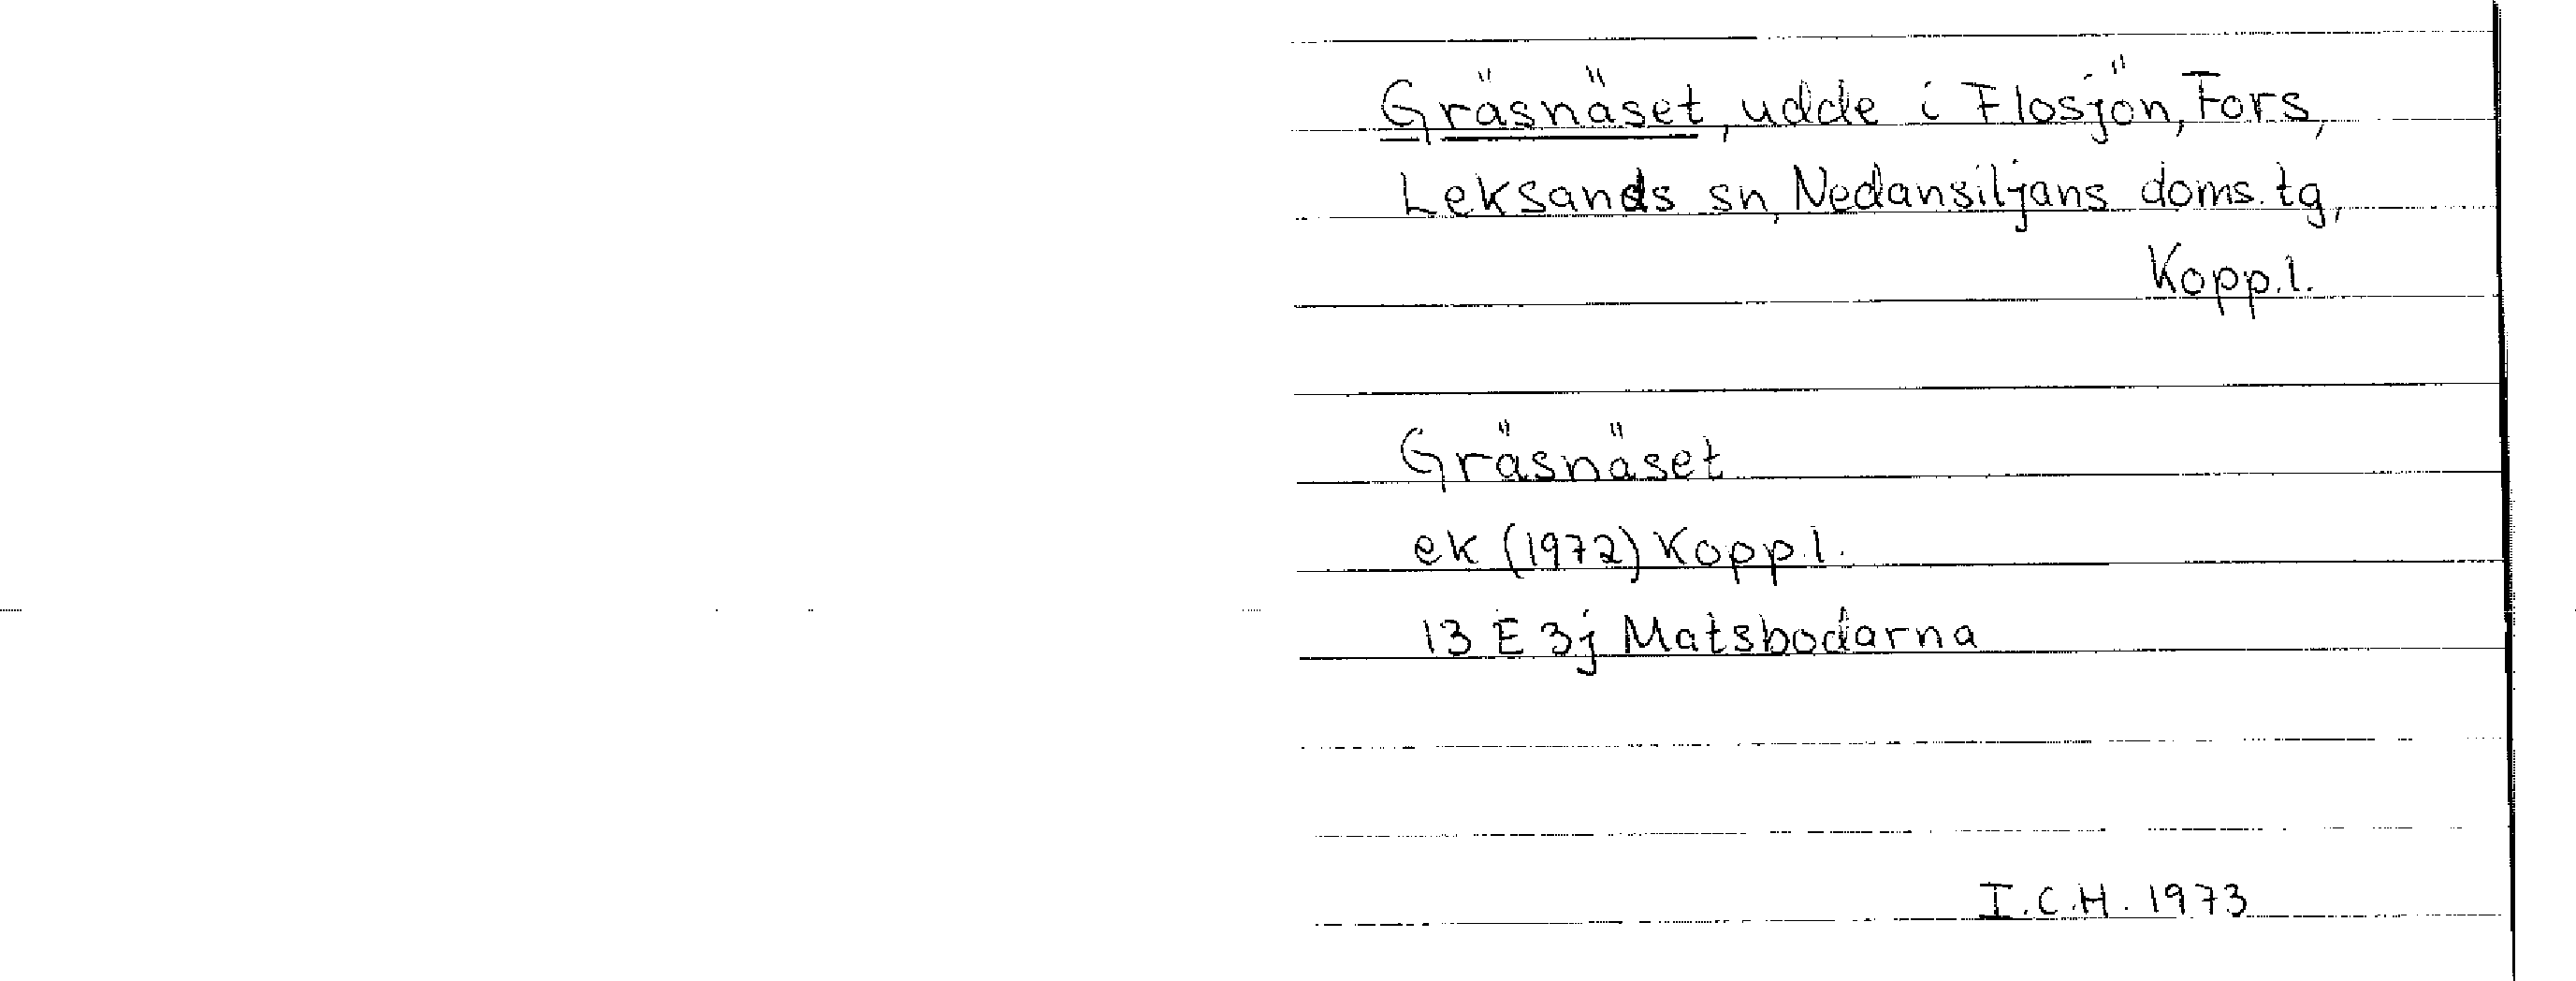 Gräsnäset, udde i Flosjön, Fors,
Leksands sn, Nedansiljans doms.tg,
Kopp.l.
Gräsnäset
ek (1972) Kopp.l.
13 E 3j Matsbodarna
I.C.H. 1973